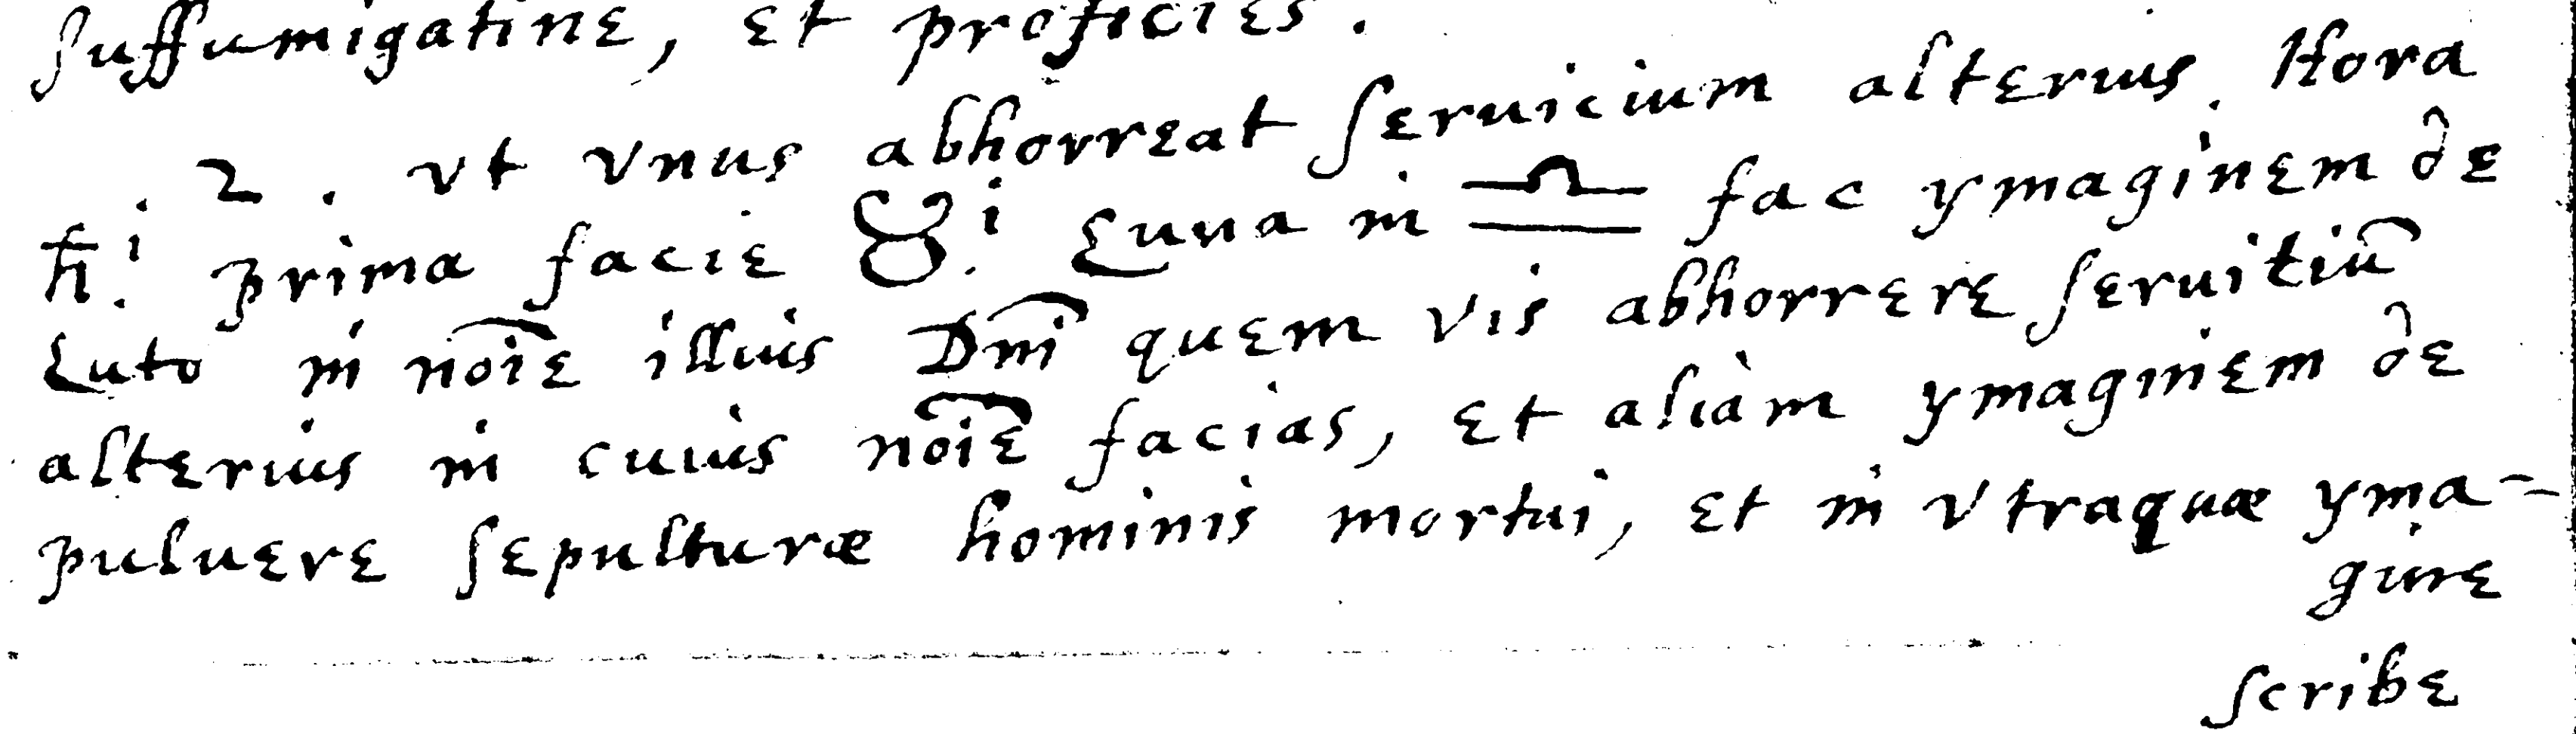 suffumigatine, et proficies.
. 2 . vt vnus abhorreat seruicium alterius. Hora
♄i. prima facie ♉i. Luna in ♎ fac ymaginem de
Luto in nōīe illius Dm̄i quem vis abhorrere seruitiū
alterius in cuius nōīe facias, et aliam ymaginem de
puluere sepulturæ hominis mortui, et in vtraquæ yma-
gine
scribe